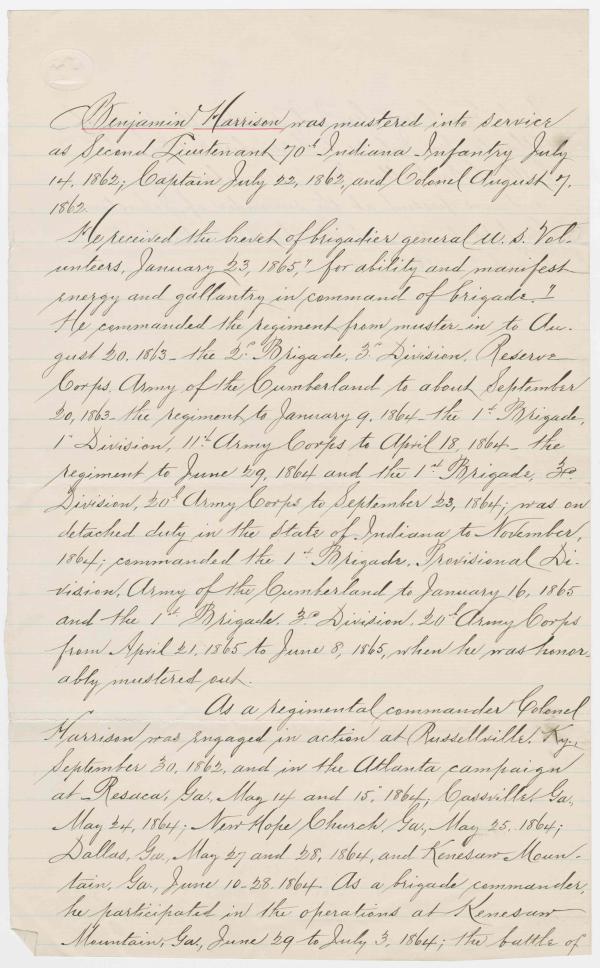 Benjamin Harrison was mustered into service
as Second Lieutenant 70th Indiana Infantry July
14, 1862; Captain July 22, 1862, and Colonel August 7,
1862.
He received the brevet of brigadier general U. S. Vol-
unteers, January 23, 1865, "for ability and manifest
energy and gallantry in command of brigade."
He commanded the regiment from muster-in to Au-
gust 20, 1863 - the 2d Brigade, 3d Division, Reserve
Corps, Army of the Cumberland to about September
20, 1863 - the regiment to January 9, 1864 - the 1st Brigade,
1st Division, 11th Army Corps to April 18, 1864 - the
regiment to June 29, 1864 and the 1st Brigade, 3d
Division, 20th Army Corps to September 23, 1864; was on
detached duty in the State of Indiana to November,
1864; commanded the 1st Brigade, Provisional Di-
vision, Army of the Cumberland to January 16, 1865
and the 1st Brigade, 3d Division, 20th Army Corps
from April 21, 1865 to June 8, 1865, when he was honor-
ably mustered out.
As a regimental commander Colonel
Harrison was engaged in action at Russellville, Ky.,
September 30, 1862, and in the Atlanta campaign
at Resaca, Ga., May 14 and 15, 1864; Cassville, Ga.,
May 24, 1864; New Hope Church, Ga., May 25, 1864;
Dallas, Ga., May 27 and 28, 1864, and Kenesaw Moun-
tain, Ga., June 10-28, 1864. As a brigade commander,
he participated in the operations at Kenesaw
Mountain, Ga., June 29 to July 3, 1864; the battle of